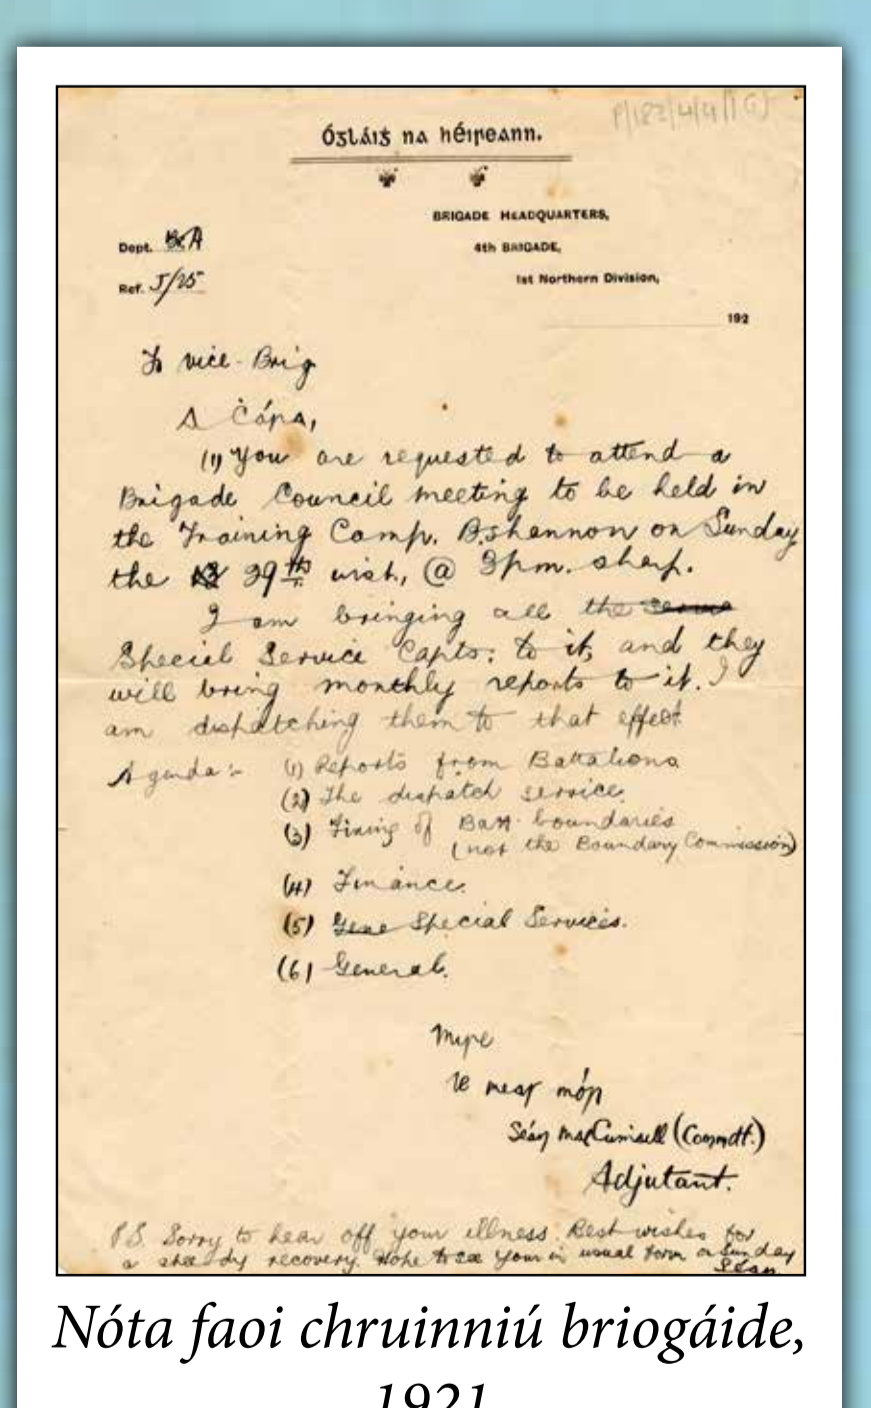 P/182/4/4/1(i)
Óglaiġ na hÉireann.
BRIGADE HEADQUARTERS,
4th BRIGADE,
1st Northern Division,
Dept. A
Ref. J/25
192
To vice-Brig
A Ċára,
(1) You are requested to attend a
Brigade Council meeting to be held in
the Training Camp. B.shannon on Sunday
the 29th inst, @ 3pm. sharp.
I am bringing all the
Special Service Capts: to it, and they
will bring monthly reports to it. I
am dispatching them to that effect
Agenda:- (1) Reports from Battalions
(2) The dispatch service.
(3) Fixing of Batt. boundaries
(not the Boundary Commission)
(4) Finance.
(5) Gene Special Services.
(6) General.
Mire
le meas mór
Seán (Commdt.)
Adjutant.
P.S. Sorry to hear off your illness. Best wishes for
a speedy recovery. Hope to see you in usual form on Sunday
Seán
Nóta faoi chruinniú briogáide,
1921